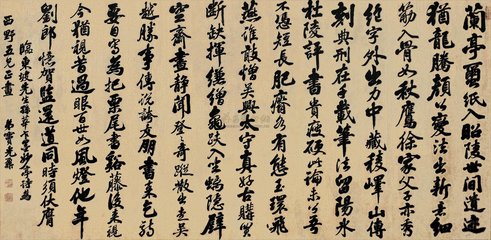 蘭亭繭紙入昭陵世間遺迹
猶龍騰顏公變法出新意細
筋入骨如秋鷹徐家父子亦秀
絕字外出力中藏稜嶧山傳
刻典刑在千載筆法留陽冰
杜陵評書貴瘦硬此論未公吾
不憑短長肥瘠各有態玉環飛
燕誰敢憎吳興太守真好古購買
斷缺揮縑繒龜趺入坐螭隱壁
空齋晝靜聞登登奇蹤散出走吳
越勝事傳說誇友朋書來乞詩
要自寫為把栗尾書谿藤後來視
今猶視昔過眼百世如風燈他年
劉郎憶賀監還道同時須伏膺
臨東坡先生孫莘老求墨妙亭詩為
西野五兄正 弟竇光鼐